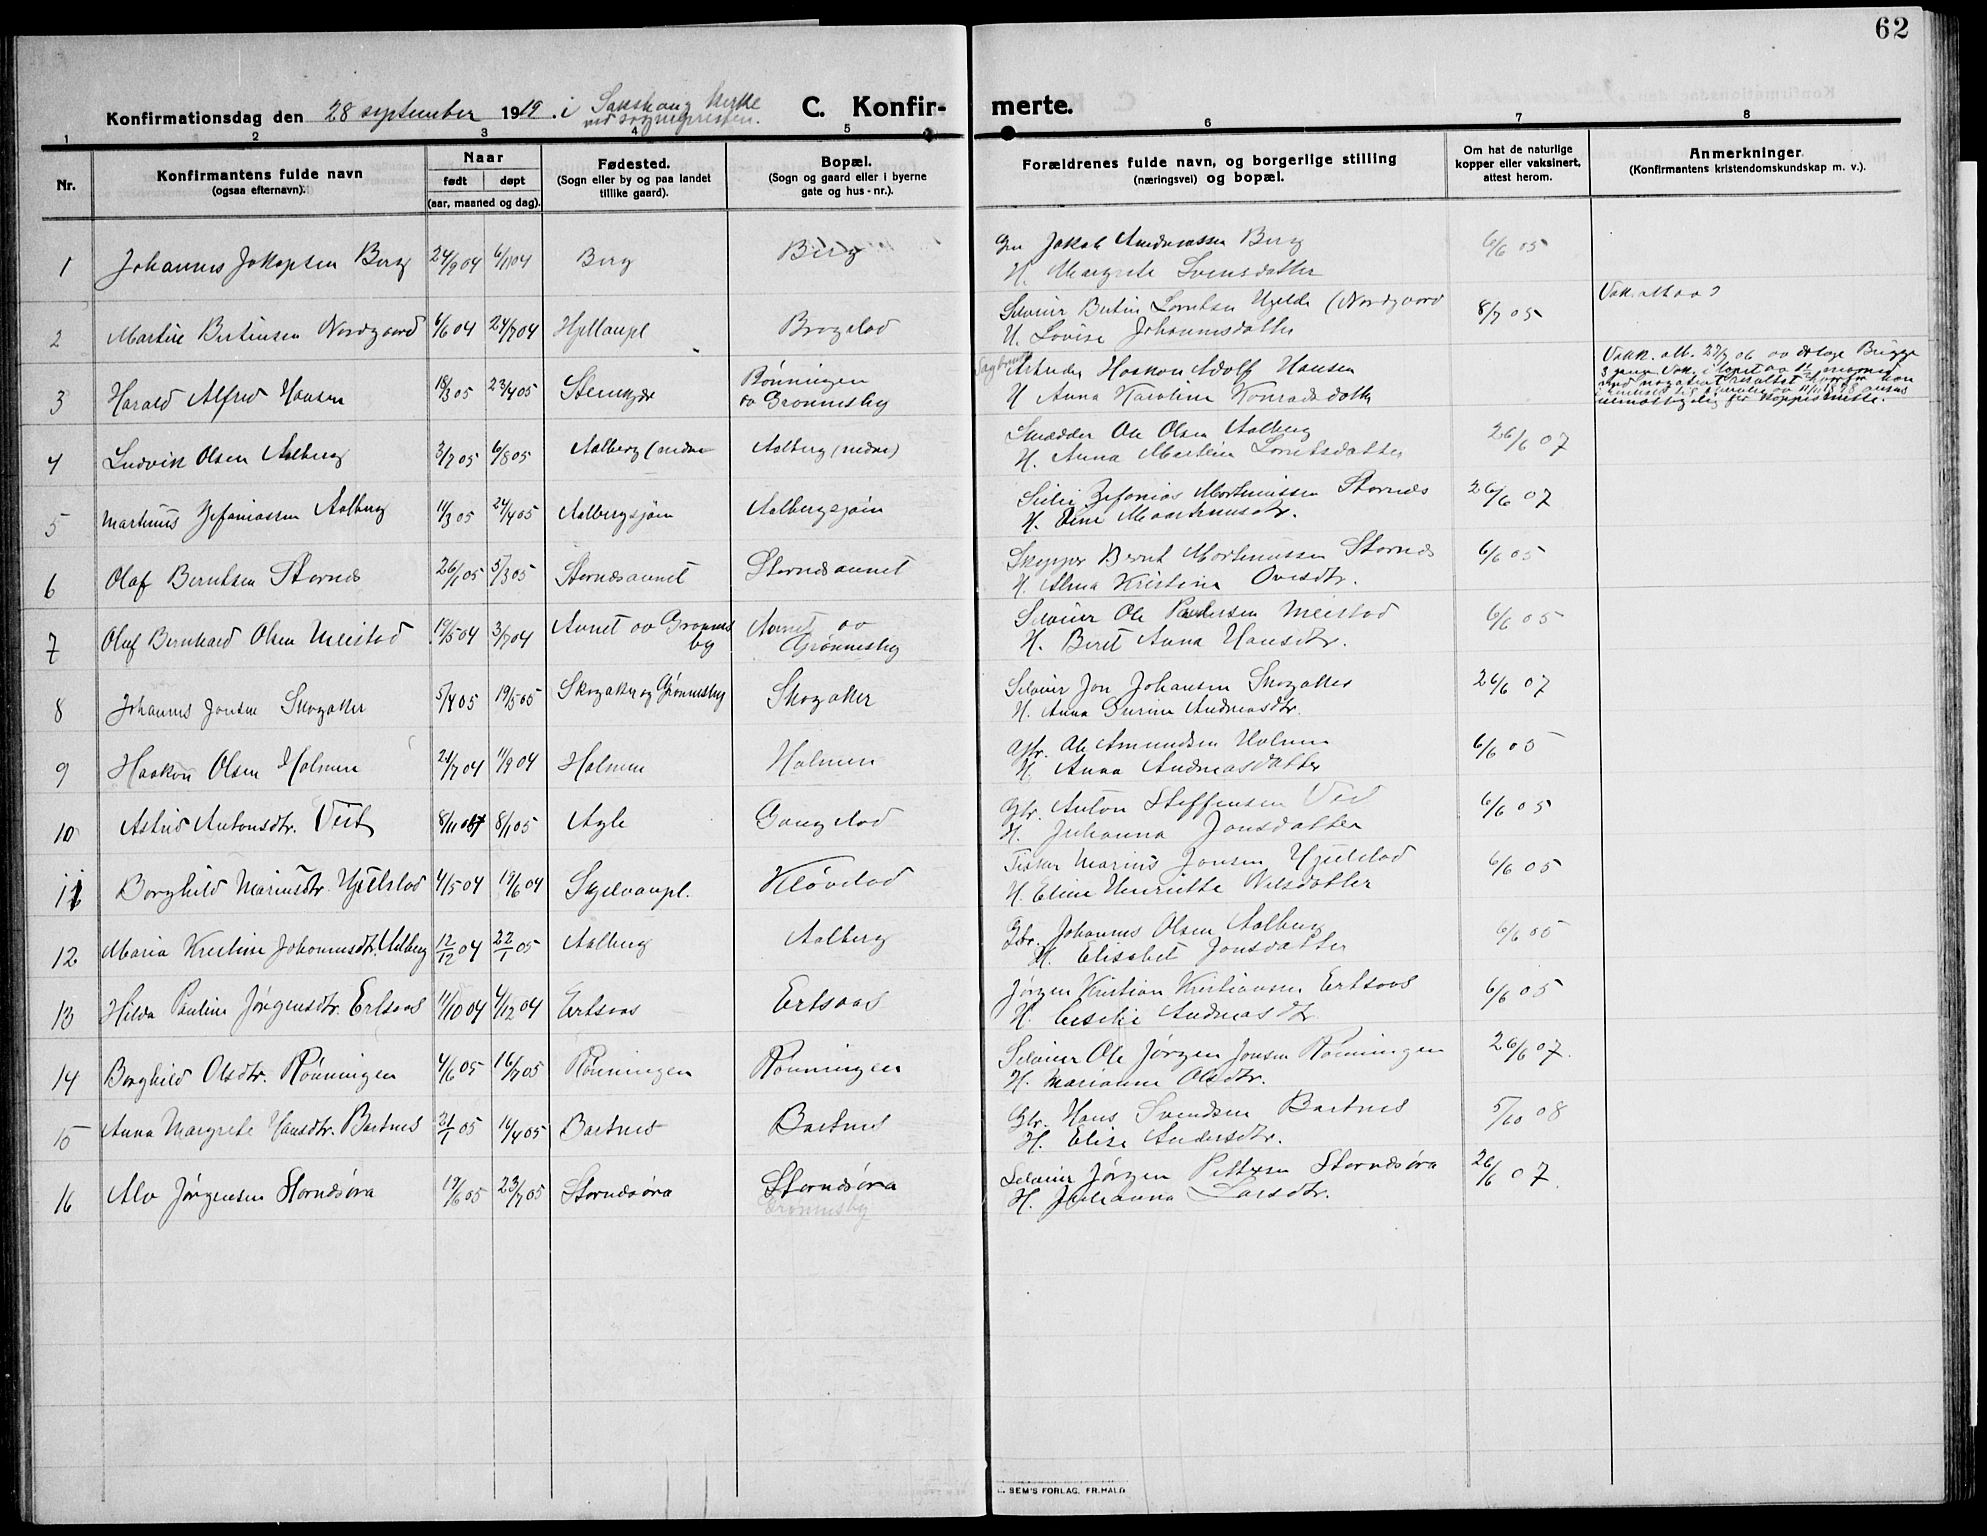 62
Konfirmationsdag den 28 september 1919. i Sakshaug kirke
ved sognepresten.
C. Konfir-
merte.
1 2 3 4 5 6 7 8
Nr.
Konfirmantens fulde navn
(ogsaa efternavn).
Naar
født døpt
(aar, maaned og dag).
Fødested.
(Sogn eller by og paa landet
tillike gaard).
Bopæl.
(Sogn og gaard eller i byerne
gate og hus-nr.).
Forældrenes fulde navn, og borgerlige stilling
(næringsvei) og bopæl.
Om hat de naturlige
kopper eller vaksinert,
attest herom.
Anmerkninger.
(Konfirmantens kristendomskundskap m. v.).
1 Johannes Jakopsen Berg 24/9 04 6/11 04 Berg Berg Jakob Andreassen Berg 6/6 05
H. Margrete Svensdatter
2 Martin Bertinsen Nordgaard 6/6 04 24/7 04 Hjellaupl Brogstad Selveier Bertin Lorntsen Hjelde (Nordgaard 8/7 05
H. Lovise Johannesdatter
3 Harald Alfred Hansen 18/3 05 23/4 05 Stenkjær Rønningen
av Grønnesby
Arbeider Haakon Adolf Hansen
H Anna Karoline Konradsdatter
Vakk. att. 27/9 06
4 Ludvik Olsen Aalberg 3/7 05 6/8 05 Aalberg (nedre Aalberg (nedre) Snedder Ole Olsen Aalberg 26/6 07
H. Anna Martin Lorntsdatter
5 Martinus Zefaniassen Aalberg 11/3 05 24/4 05 Aalbergsjøen Aalbergsjøen Zefanias Mortinussen Stornes 26/6 07
H. Eline Maartinusdtr.
6 Olaf Berntsen Stornes 26/1 05 5/3 05 Stornesaunet Stornesaunet Skipper Bernt Mortinussen Stornes 6/6 05
H. Alma Kristine Ovesdtr.
7 Olaf Bernhard Olsen Meistad 19/5 04 3/7 04 Aunet av Grønnes
by
Aunet av
Grønnesby
Selveier Ole Pedersen Meistad 6/6 05
H. Beret Anna Hansdtr.
8 Johannes Jonsen Skogaker 5/4 05 19/5 05 Skogaker og Grønnesby Skogaker Selveier Jon Johansen Skogaker 26/6 07
H. Anna Gurine Andreasdtr.
9 Haakon Olsen Holmen 21/7 04 11/9 04 Holmen Holmen Gbr. Ole Amundsen Holmen 6/6 05
H. Anna Andreasdatter
10 Astrid Antonsdtr. Vist 8/11 04 8/1 05 Agle Gangstad Gbr. Anton Steffensen Vist 6/6 05
H. Johanna Jonsdatter
11 Borghild Mariusdtr. Hjelstad 4/5 04 19/6 04 Skjelvaupl. Kløvstad Fisker Marius Jonsen Hjelstad 6/6 05
H. Eline Henriette Nilsdatter
12 Maria Kristine Johannesdtr. Aalberg 12/12 04 22/1 05 Aalberg Aalberg Gbr. Johannes Olsen Aalberg 6/6 05
H. Elisabet Jonsdatter
13 Hilda Pauline Jørgensdtr. Ertsaas 11/10 04 4/12 04 Ertsaas Ertsaas Jørgen Kristian Kristiansen Ertsaas 6/6 05
H. Cecelie Andreasdtr
14 Borghild Olsdtr. Rønningen 4/6 05 16/7 05 Rønningen Rønningen Selveier Ole Jørgen Jonsen Rønningen 26/6 07.
H. Marianne Olsdtr.
15 Anna Margrete Hansdtr. Bartnes 21/1 05 16/4 05 Bartnes Bartnes Gbr. Hans Svendsen Bartnes 5/10 08
H. Elise Andersdtr.
16 Alv Jørgensen Stornesøra 19/6 05 23/7 05 Stornesøra Stornesøra
Grønnesby
Selveier Jørgen Pettersen Stornesøra 26/6 07.
H. Johanna Larsdtr.
SEM'S FORLAG, FR.HALD